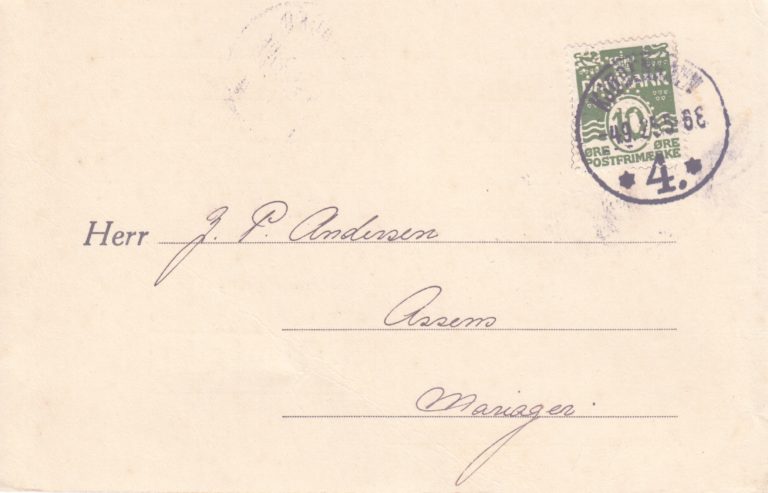 DANMARK
10
ØRE ØRE
POSTFRIMÆRKE
KJØBENHAVN
4.
Herr J. P. Andersen
Assens
Mariager.